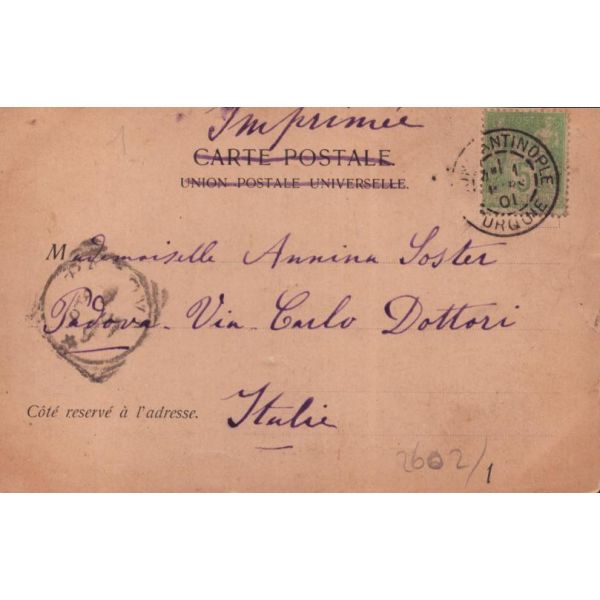 1
Imprimée
CARTE POSTALE
UNION POSTALE UNIVERSELLE.
ANTINOPLE
01
URQUIE
5
Mademoiselle Annina Soster
Padova - Via Carlo Dottori
Côté reservé à l'adresse.
Italie
2602/1